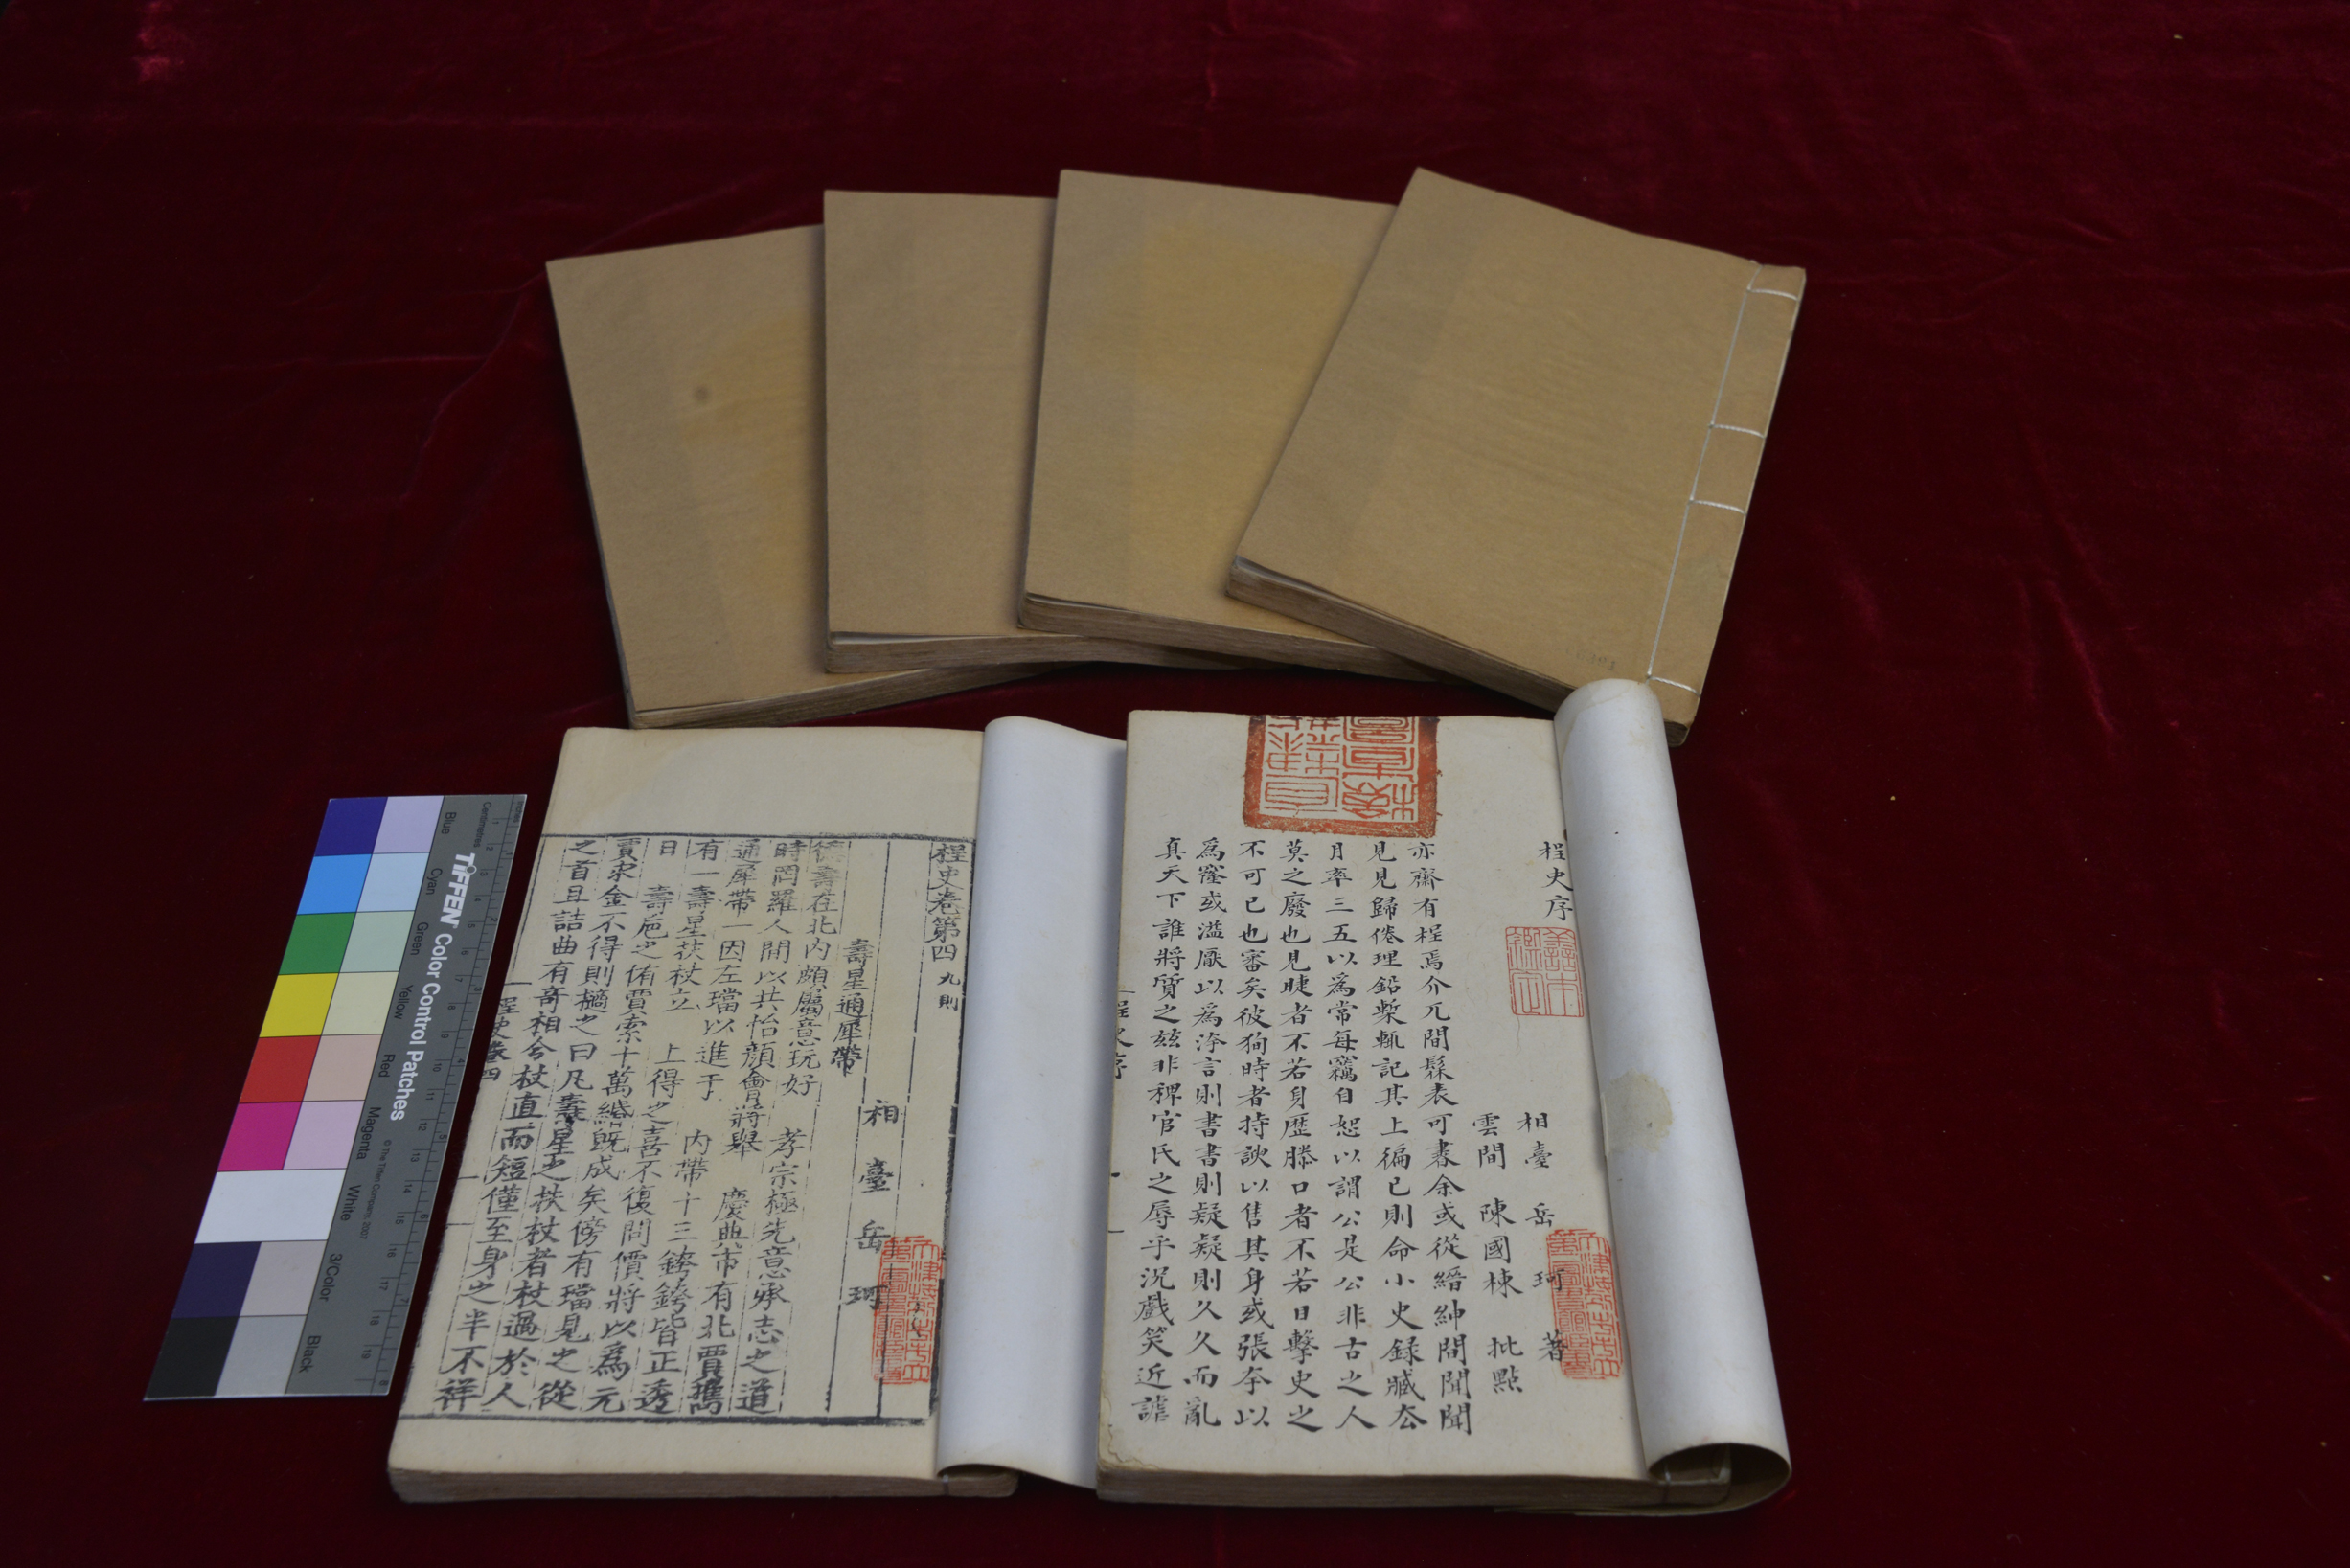 桯史序
相臺 岳 珂 著
雲間 陳國棟 批點
亦齋有桯焉介几間髹表可書余或從縉紳間聞聞
見見歸倦理鉛槧輒記其上徧已則命小史錄臧去
月率三五以為常每竊自恕以謂公是公非古之人
莫之廢也見睫者不若身歷滕口者不若目擊史之
不可已也審矣彼狥時者持諛以售其身或張夲以
為竁或溢厭以為涬言則書書則疑疑則久久而亂
真天下誰將質之玆非稗官氏之辱乎況戲笑近謔
桯史序
善本
鑑定
天津
桯史卷第四 九則
相 臺 岳 珂
壽星通犀帶
德壽在北內頗屬意玩好 孝宗極先意承志之道
時罔羅人間以共怡顏會將舉 慶典市有北賈攜
通犀帶一因左璫以進于 內帶十三銙銙皆正透
有一壽星扶杖立 上得之喜不復問價將以為元
日 壽巵之侑賈索十萬緡旣成矣傍有璫見之從
賈求金不得則擿之曰凡壽星之扶杖者杖過於人
之首且詰曲有奇相今杖直而短僅至身之半不祥
桯史卷四
TIFFEN Color Control Patches
© The Tiffen Company, 2007
Centimetres
Inches
Blue
Cyan
Green
Yellow
Red
Magenta
White
3/Color
Black